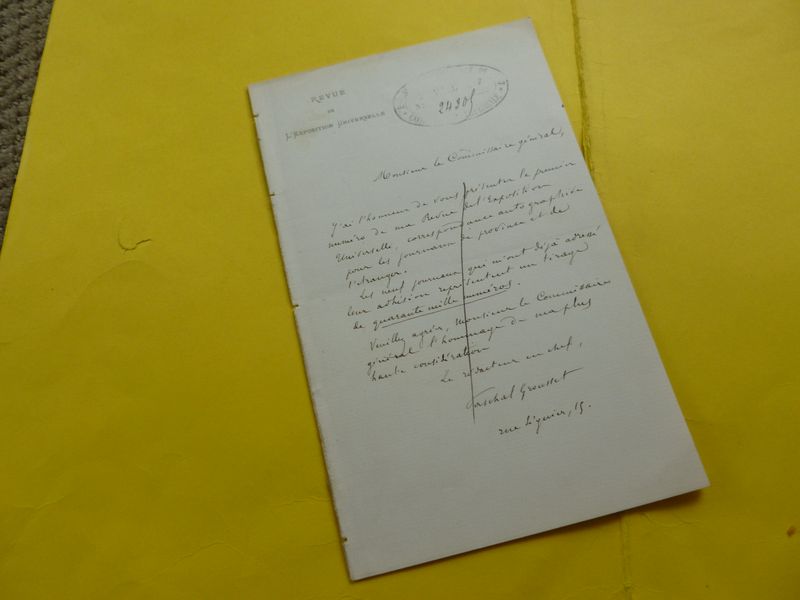 REVUE
DE
L'EXPOSITION UNIVERSELLE
24205
Monsieur le Commissaire général,
J'ai l'honneur de vous présenter le premier
numéro de ma Revue de l'Exposition
Universelle, correspondance autographiée
pour les journaux de province et de
l'étranger.
Les neuf journaux qui m'ont déjà adressé
leur adhésion représentent un tirage
de quarante mille numéros.
Veuillez agréer, Monsieur le Commissaire
général l'hommage de ma plus
haute considération
Le rédacteur en chef,
Paschal Grousset
rue 15.